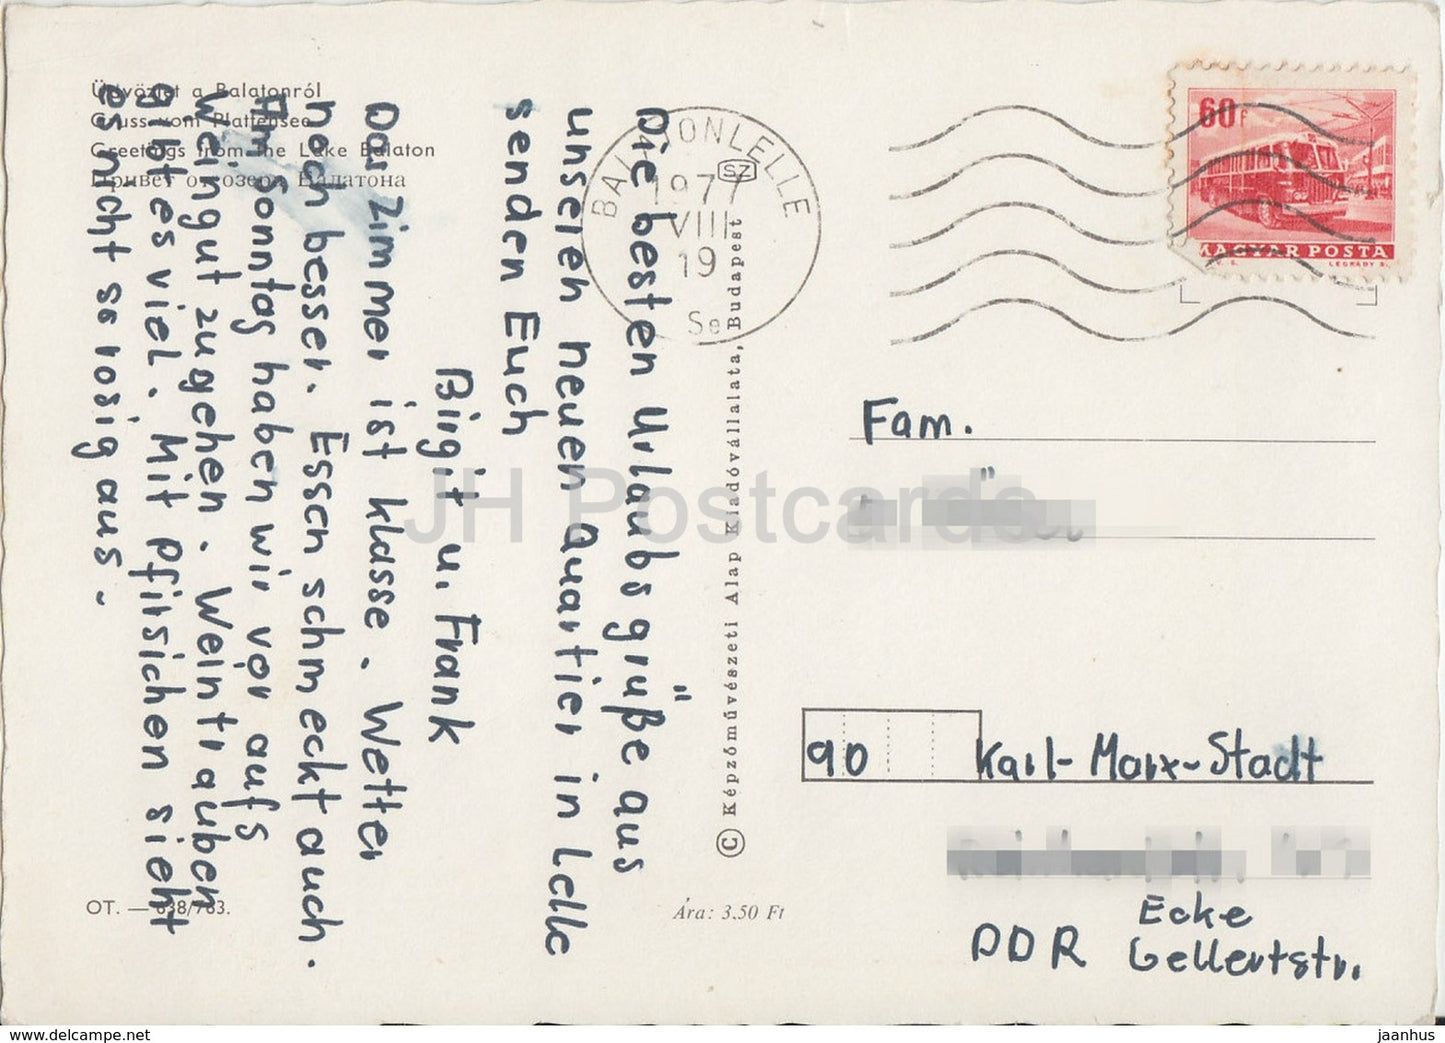 Üdvözlet a Balatonról
Gruss vom Plattensee
Greetings from the Lake Balaton
Привет от озера Балатона
Die besten Urlaubsgrüße aus
unseren neuen Quartier in Lelle
senden Euch
Birgit u. Frank
Das Zimmer ist klasse. Wetter
noch besser. Essen schmeckt auch.
Am Sonntag haben wir vor aufs
Weingut zugehen. Weintrauben
gibt es viel. Mit Pfirsichen sieht
es nicht so rosig aus.
OT. — 838/763.
Ára: 3.50 Ft
© Képzőművészeti Alap Kiadóvállalata, Budapest
BALATONLELLE
SZ
1977
VIII
19
Se
60f
MAGYAR POSTA
LÉGRÁDY S.
Fam.
90 Karl-Marx-Stadt
Ecke
DDR Gellertstr.
JH Postcards
www.delcampe.net
jaanhus